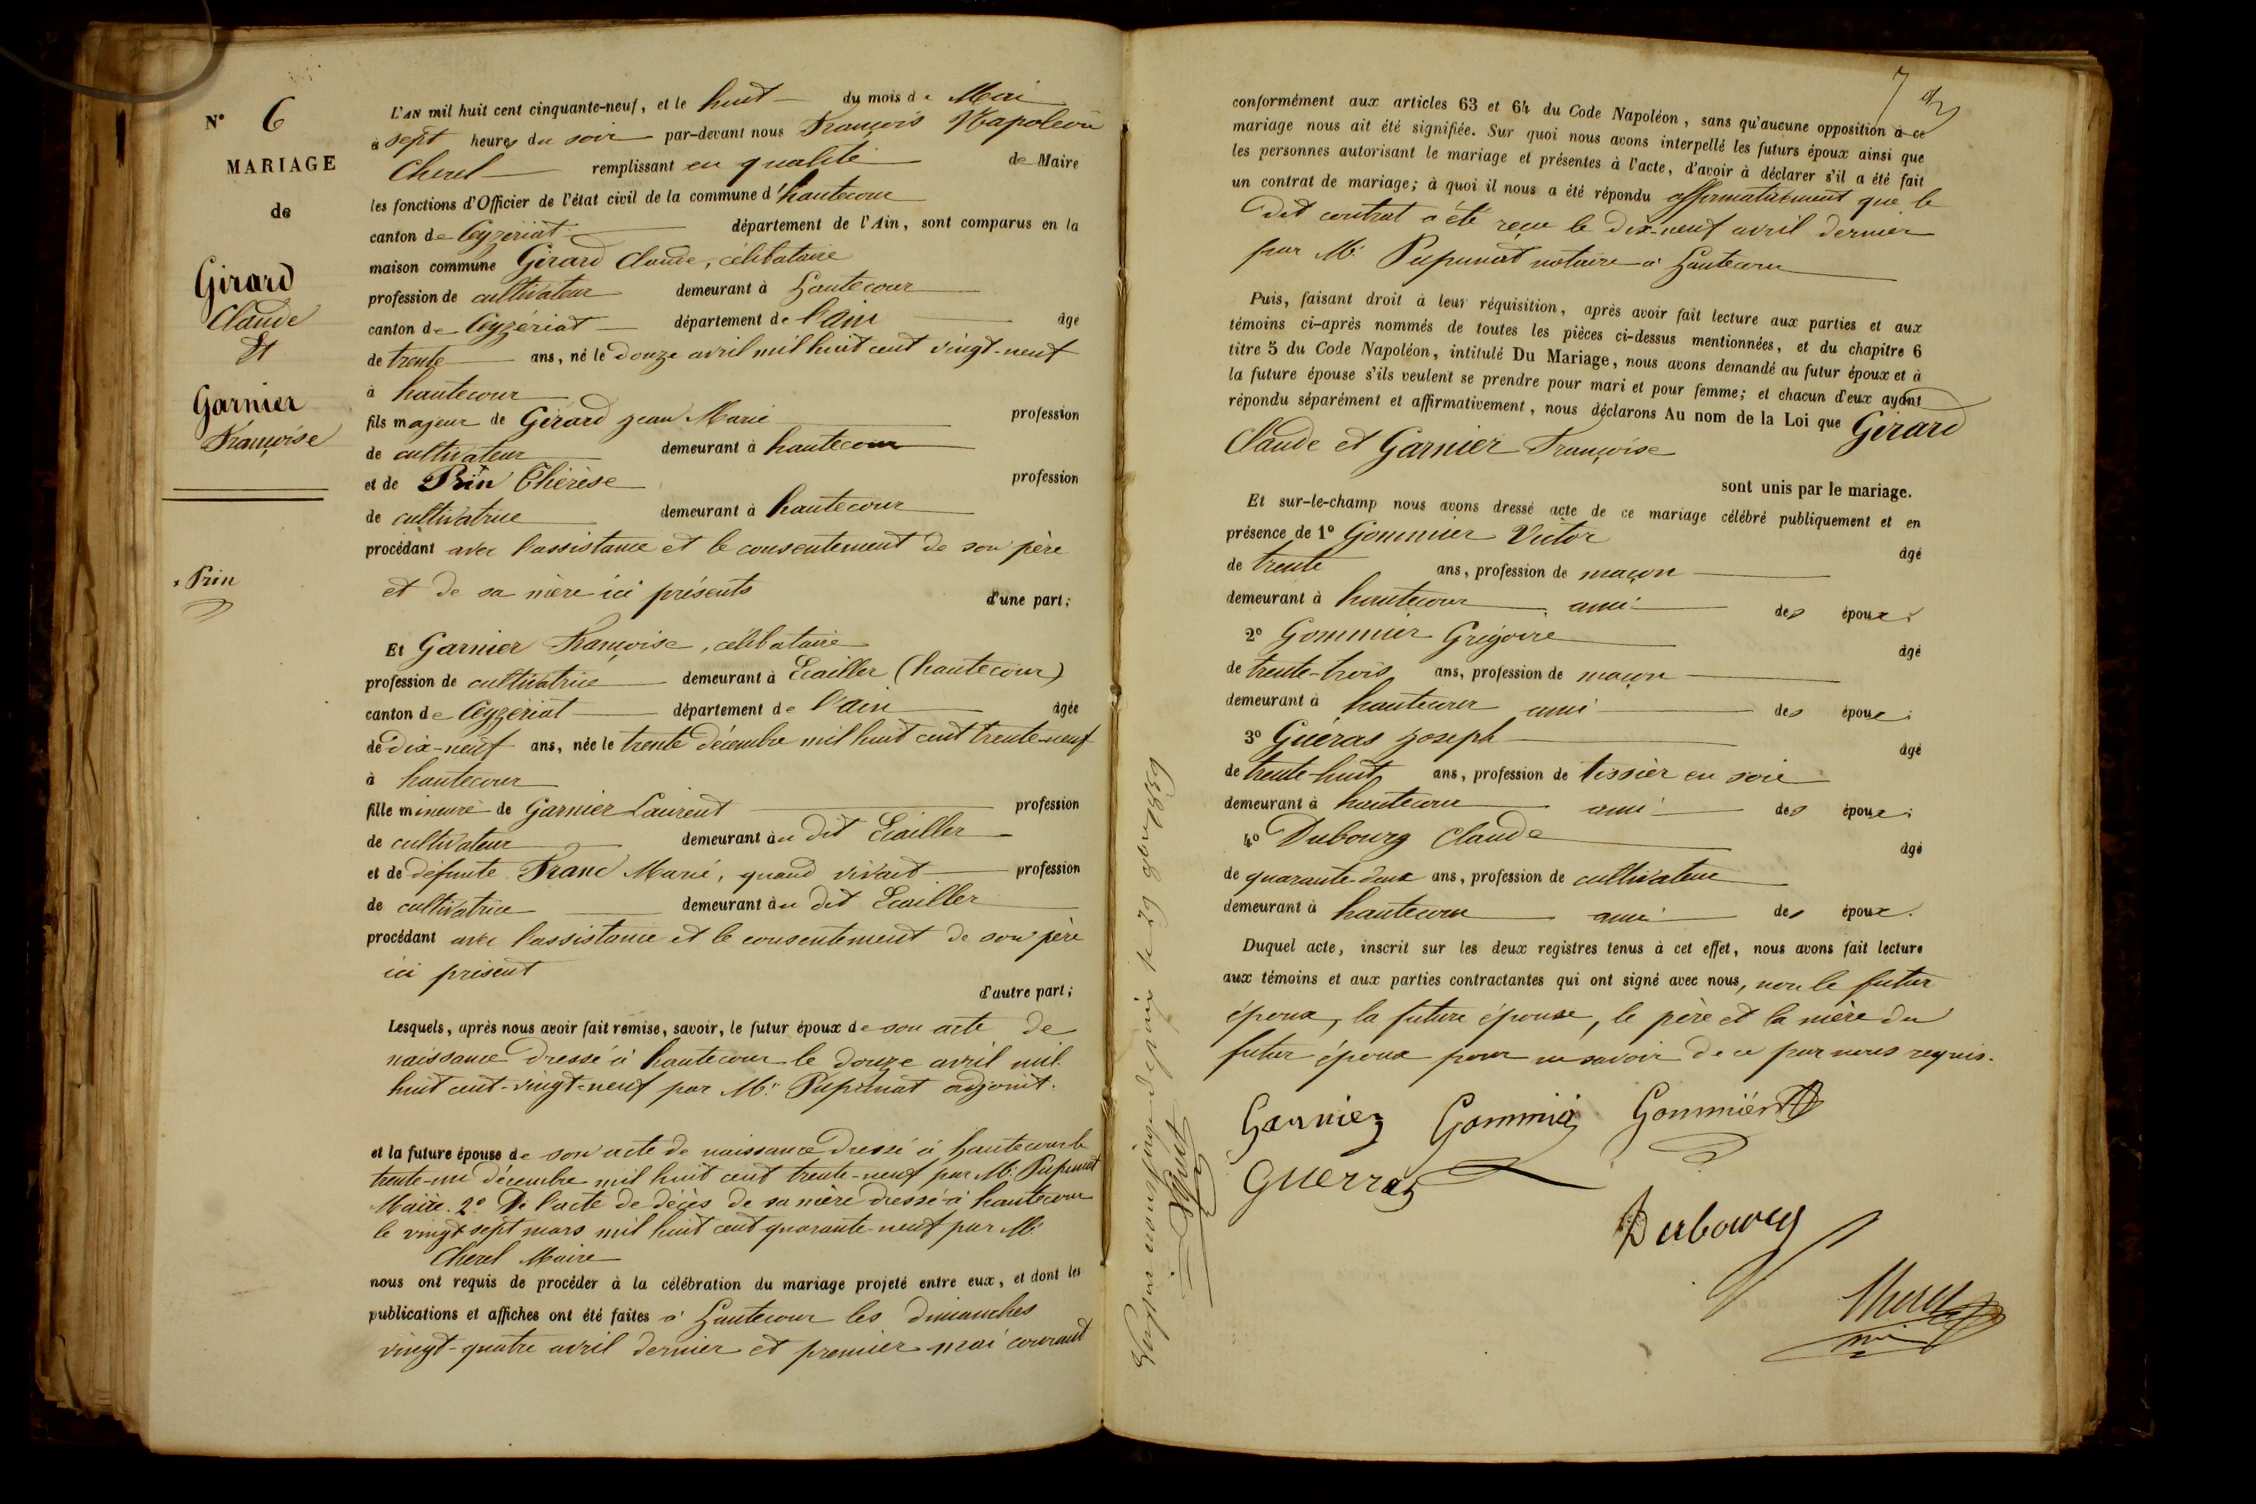 N° 6
MARIAGE
de
Girard
Claude
Et
Garnier
Françoise
x Prin
L'AN mil huit cent cinquante-neuf, et le huit du mois de Mai
à sept heures du soir par-devant nous François Napoléon
Cherel remplissant en qualité de Maire
les fonctions d'Officier de l'état civil de la commune d'hautecour
canton de Ceyzeriat département de l'Ain, sont comparus en la
maison commune Girard Claude, célibataire
profession de cultivateur demeurant à Hautecour
canton de Ceyzériat département de l'ain âgé
de trente ans, né le douze avril mil huit cent vingt-neuf
à hautecour
fils majeur de Girard jean Marie profession
de cultivateur demeurant à hautecour
et de Prin Thérèse profession
de cultivatrice demeurant à hautecour
procédant avec l'assistance et le consentement de son père
et de sa mère ici présents d'une part;
Et Garnier Françoise, célibataire
profession de cultivatrice demeurant à Ecailler (hautecour)
canton de Ceyzeriat département de l'ain âgée
de dix-neuf ans, née le trente décembre mil huit cent trente-neuf
à hautecour
fille mineure de Garnier Laurent profession
de cultivateur demeurant au dit Ecailler
et de défunte Franc Marie, quand vivait profession
de cultivatrice demeurant au dit Ecailler
procédant avec l'assistance et le consentement de son père
ici présent
d'autre part;
Lesquels, après nous avoir fait remise, savoir, le futur époux de son acte de
naissance dressé à hautecour le douze avril mil
huit cent-vingt-neuf par Mr. Pupunat adjoint.
et la future épouse de son acte de naissance dressé à hautecour le
trente-un décembre mil huit cent trente-neuf par Mr. Pupunat
Maire. 2° De l'acte de décès de sa mère dressé à hautecour
le vingt sept mars mil huit cent quarante-neuf par Mr.
Cherel Maire
nous ont requis de procéder à la célébration du mariage projeté entre eux, et dont les
publications et affiches ont été faites à Hautecour les dimanches
vingt-quatre avril dernier et premier mai courant
7
conformément aux articles 63 et 64 du Code Napoléon, sans qu'aucune opposition à ce
mariage nous ait été signifiée. Sur quoi nous avons interpellé les futurs époux ainsi que
les personnes autorisant le mariage et présentes à l'acte, d'avoir à déclarer s'il a été fait
un contrat de mariage; à quoi il nous a été répondu affirmativement que le
dit contrat a été reçu le dix-neuf avril dernier
par Mr. Pupunat notaire à Hautecour
Puis, faisant droit à leur réquisition, après avoir fait lecture aux parties et aux
témoins ci-après nommés de toutes les pièces ci-dessus mentionnées, et du chapitre 6
titre 5 du Code Napoléon, intitulé Du Mariage, nous avons demandé au futur époux et à
la future épouse s'ils veulent se prendre pour mari et pour femme; et chacun d'eux ayant
répondu séparément et affirmativement, nous déclarons Au nom de la Loi que Girard
Claude et Garnier Françoise
sont unis par le mariage.
Et sur-le-champ nous avons dressé acte de ce mariage célébré publiquement et en
présence de 1° Gommier Victor âgé
de trente ans, profession de maçon
demeurant à hautecour ami des époux;
2° Gommier Grégoire âgé
de trente-trois ans, profession de maçon
demeurant à hautecour ami des époux;
3° Guéras joseph âgé
de trente-huit ans, profession de tissier en soie
demeurant à hautecour ami des époux;
4° Dubourg Claude âgé
de quarante-deux ans, profession de cultivateur
demeurant à hautecour ami des époux.
Duquel acte, inscrit sur les deux registres tenus à cet effet, nous avons fait lecture
aux témoins et aux parties contractantes qui ont signé avec nous, non le futur
époux, la future épouse, le père et la mère du
futur époux pour ne savoir de ce par nous requis.
Garnier Gommier Gommier
Guerras
Dubourg
Cherel